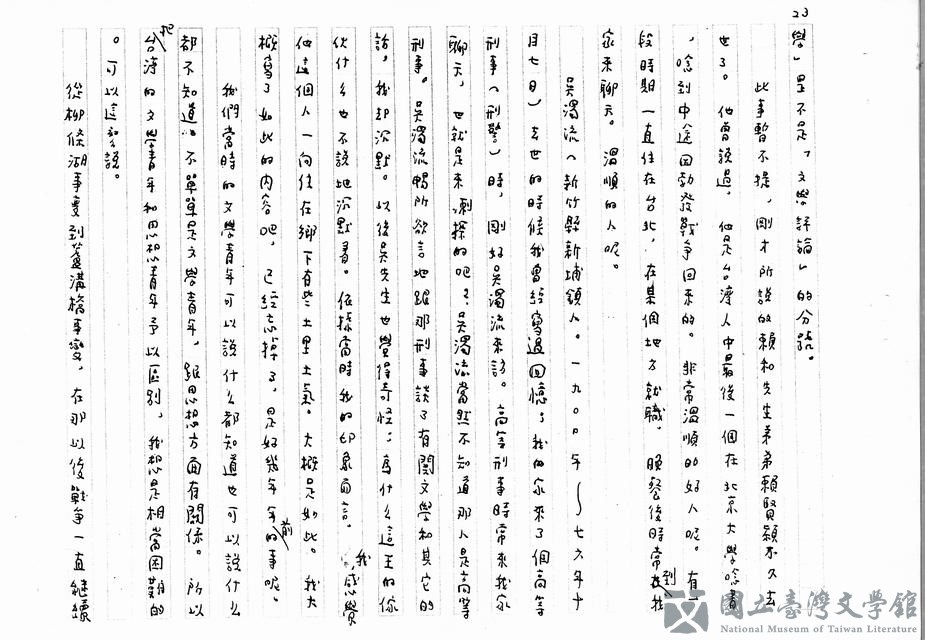 23
學」是不是「文學評論」的分號。
此事暫不提，剛才所說的賴和先生弟弟賴賢穎不久去
世了。他曾說過，他是台灣人中最後一個在北京大學唸書
，唸到中途因勃發戰爭回來的。非常溫順的好人呢。有一
段時期一直住在台北，在某個地方就職，晚餐後時常到我
家來聊天。溫順的人呢。
吳濁流（新竹縣新埔鎮人。一九〇〇年～七六年十
月七日）去世的時候我曾經寫過回憶了我的家來了個高等
刑事（刑警）時，剛好吳濁流來訪。高等刑事時常來我家
聊天，也就是來刺探的吧？吳濁流當然不知道那人是高等
刑事。吳濁流暢所欲言地跟那刑事談了有關文學和其它的
話，我却沉默。以後吳先生也覺得奇怪：為什么這王的傢
伙什么也不說地沉默著。依據當時我的印象而言，我感覺
他這個人一向住在鄉下有些土里土氣。大概是如此。我大
概寫了如此的內容吧，已經忘掉了，是好幾年前的事呢。
我們當時的文學青年可以說什么都知道也可以說什么
都不知道。不單單是文學青年，跟思想方面有關係。所以
把台灣的文學青年和思想青年予以區別，我想是相當困難的
。可以這么說。
從柳條湖事變到蘆溝橋事變，在那以後戰爭一直繼續
國立臺灣文學館
National Museum of Taiwan Literature